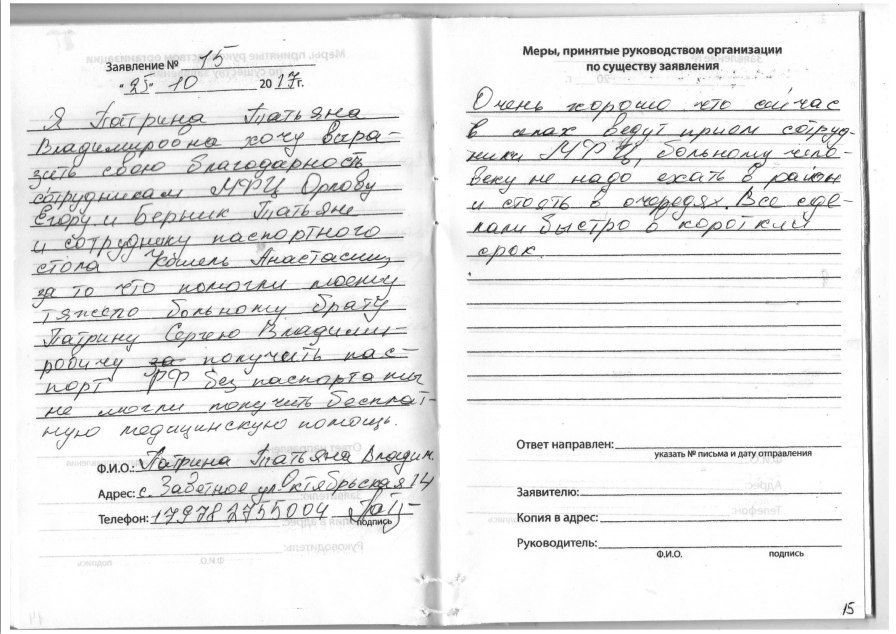 Заявление № 15
"25" 10 2017г.
Я Патрина Татьяна
Владимировна хочу выра-
зить свою благодарность
сотрудникам МФЦ Орлову
Егору и Берник Татьяне
и сотруднику паспортного
стола Кошель Анастасии
за то что помогли моему
тяжело больному брату
Патрину Сергею Владими-
ровичу за получить пас-
порт РФ без паспорта мы
не могли получить бесплат-
ную медицинскую помощь.
Ф.И.О.: Патрина Татьяна Владим
Адрес: с. Заветное ул. Октябрьская 14
Телефон: +79782755004
подпись
Меры, принятые руководством организации
по существу заявления
Очень хорошо что сейчас
в селах ведут прием сотруд-
ники МФЦ, больному чело-
веку не надо ехать в район
и стоять в очередях. Все сде-
лали быстро в короткий
срок.
Ответ направлен:
указать № письма и дату отправления
Заявителю:
Копия в адрес:
Руководитель:
Ф.И.О. подпись
15